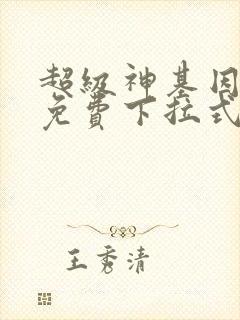 超级神基因
免费下拉式
王秀清